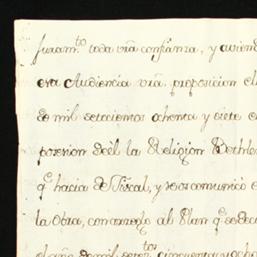 Juram.to toda vra confianza, y aviend
esa Audiencia vra proposicion el
de mil setecientos ochenta y siete e
posesion de él la Religion Bethle
q.e hacia de Fiscal, y se os comunicó e
la Obra, con arreglo al Plan q.e se dec
el año de mil setez.tos cincuenta y ocho